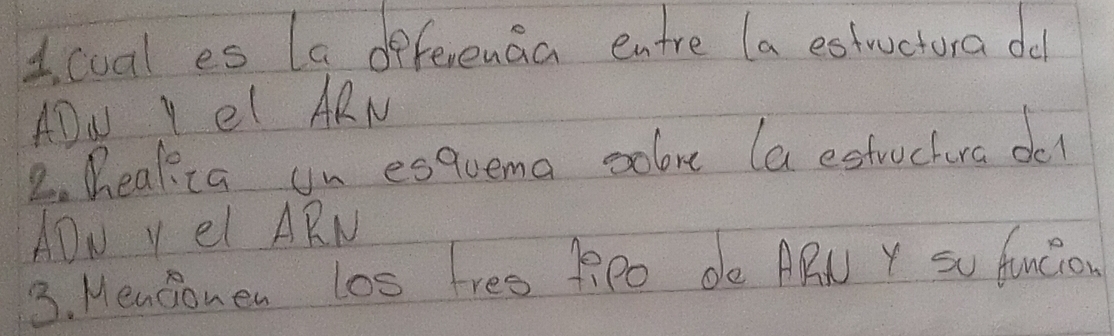 1. Cual es la diferencia entre la estructura del
ADN y el ARN
2. Realiza un esquema sobre la estructura del
ADN y el ARN
3. Mencionen los tres tipo de ARN y su funcion